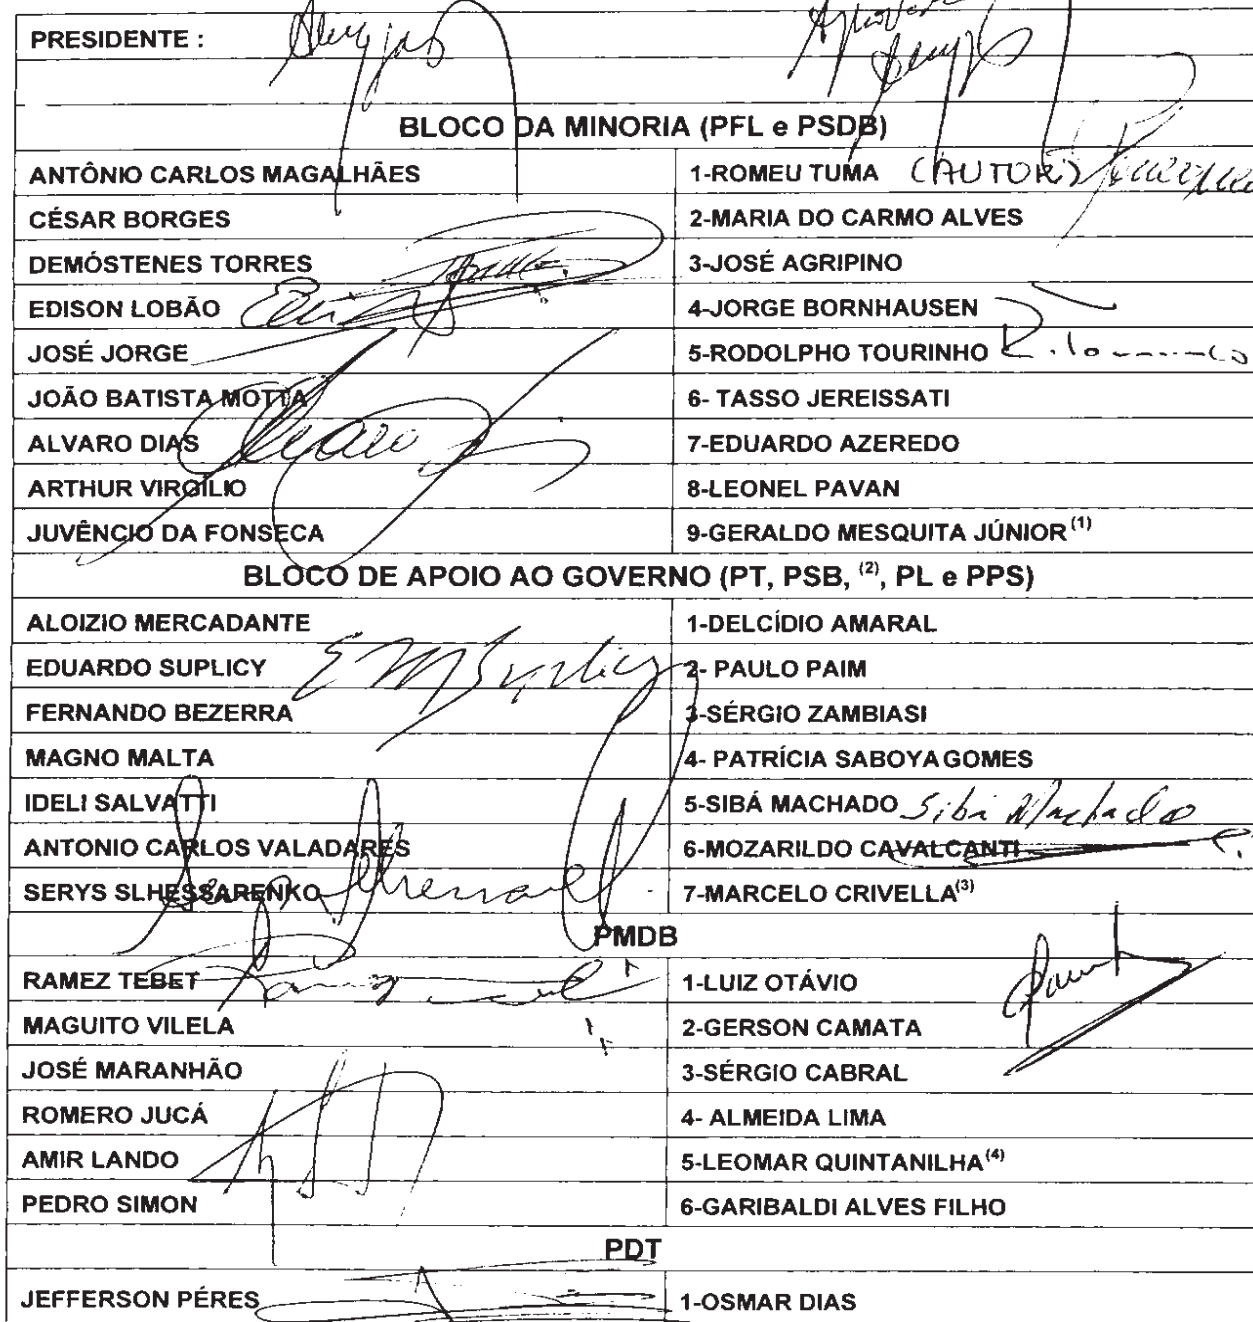 PRESIDENTE :
BLOCO DA MINORIA (PFL e PSDB)
ANTÔNIO CARLOS MAGALHÃES 1-ROMEU TUMA (AUTOR)
CÉSAR BORGES 2-MARIA DO CARMO ALVES
DEMÓSTENES TORRES 3-JOSÉ AGRIPINO
EDISON LOBÃO 4-JORGE BORNHAUSEN
JOSÉ JORGE 5-RODOLPHO TOURINHO
JOÃO BATISTA MOTTA 6- TASSO JEREISSATI
ALVARO DIAS 7-EDUARDO AZEREDO
ARTHUR VIRGÍLIO 8-LEONEL PAVAN
JUVÊNCIO DA FONSECA 9-GERALDO MESQUITA JÚNIOR (1)
BLOCO DE APOIO AO GOVERNO (PT, PSB, (2), PL e PPS)
ALOIZIO MERCADANTE 1-DELCÍDIO AMARAL
EDUARDO SUPLICY EMSuplicy 2- PAULO PAIM
FERNANDO BEZERRA 3-SÉRGIO ZAMBIASI
MAGNO MALTA 4- PATRÍCIA SABOYA GOMES
IDELI SALVATTI 5-SIBÁ MACHADO Sibá Machado
ANTONIO CARLOS VALADARES 6-MOZARILDO CAVALCANTI
SERYS SLHESSARENKO 7-MARCELO CRIVELLA(3)
PMDB
RAMEZ TEBET 1-LUIZ OTÁVIO
MAGUITO VILELA 2-GERSON CAMATA
JOSÉ MARANHÃO 3-SÉRGIO CABRAL
ROMERO JUCÁ 4- ALMEIDA LIMA
AMIR LANDO 5-LEOMAR QUINTANILHA(4)
PEDRO SIMON 6-GARIBALDI ALVES FILHO
PDT
JEFFERSON PÉRES 1-OSMAR DIAS